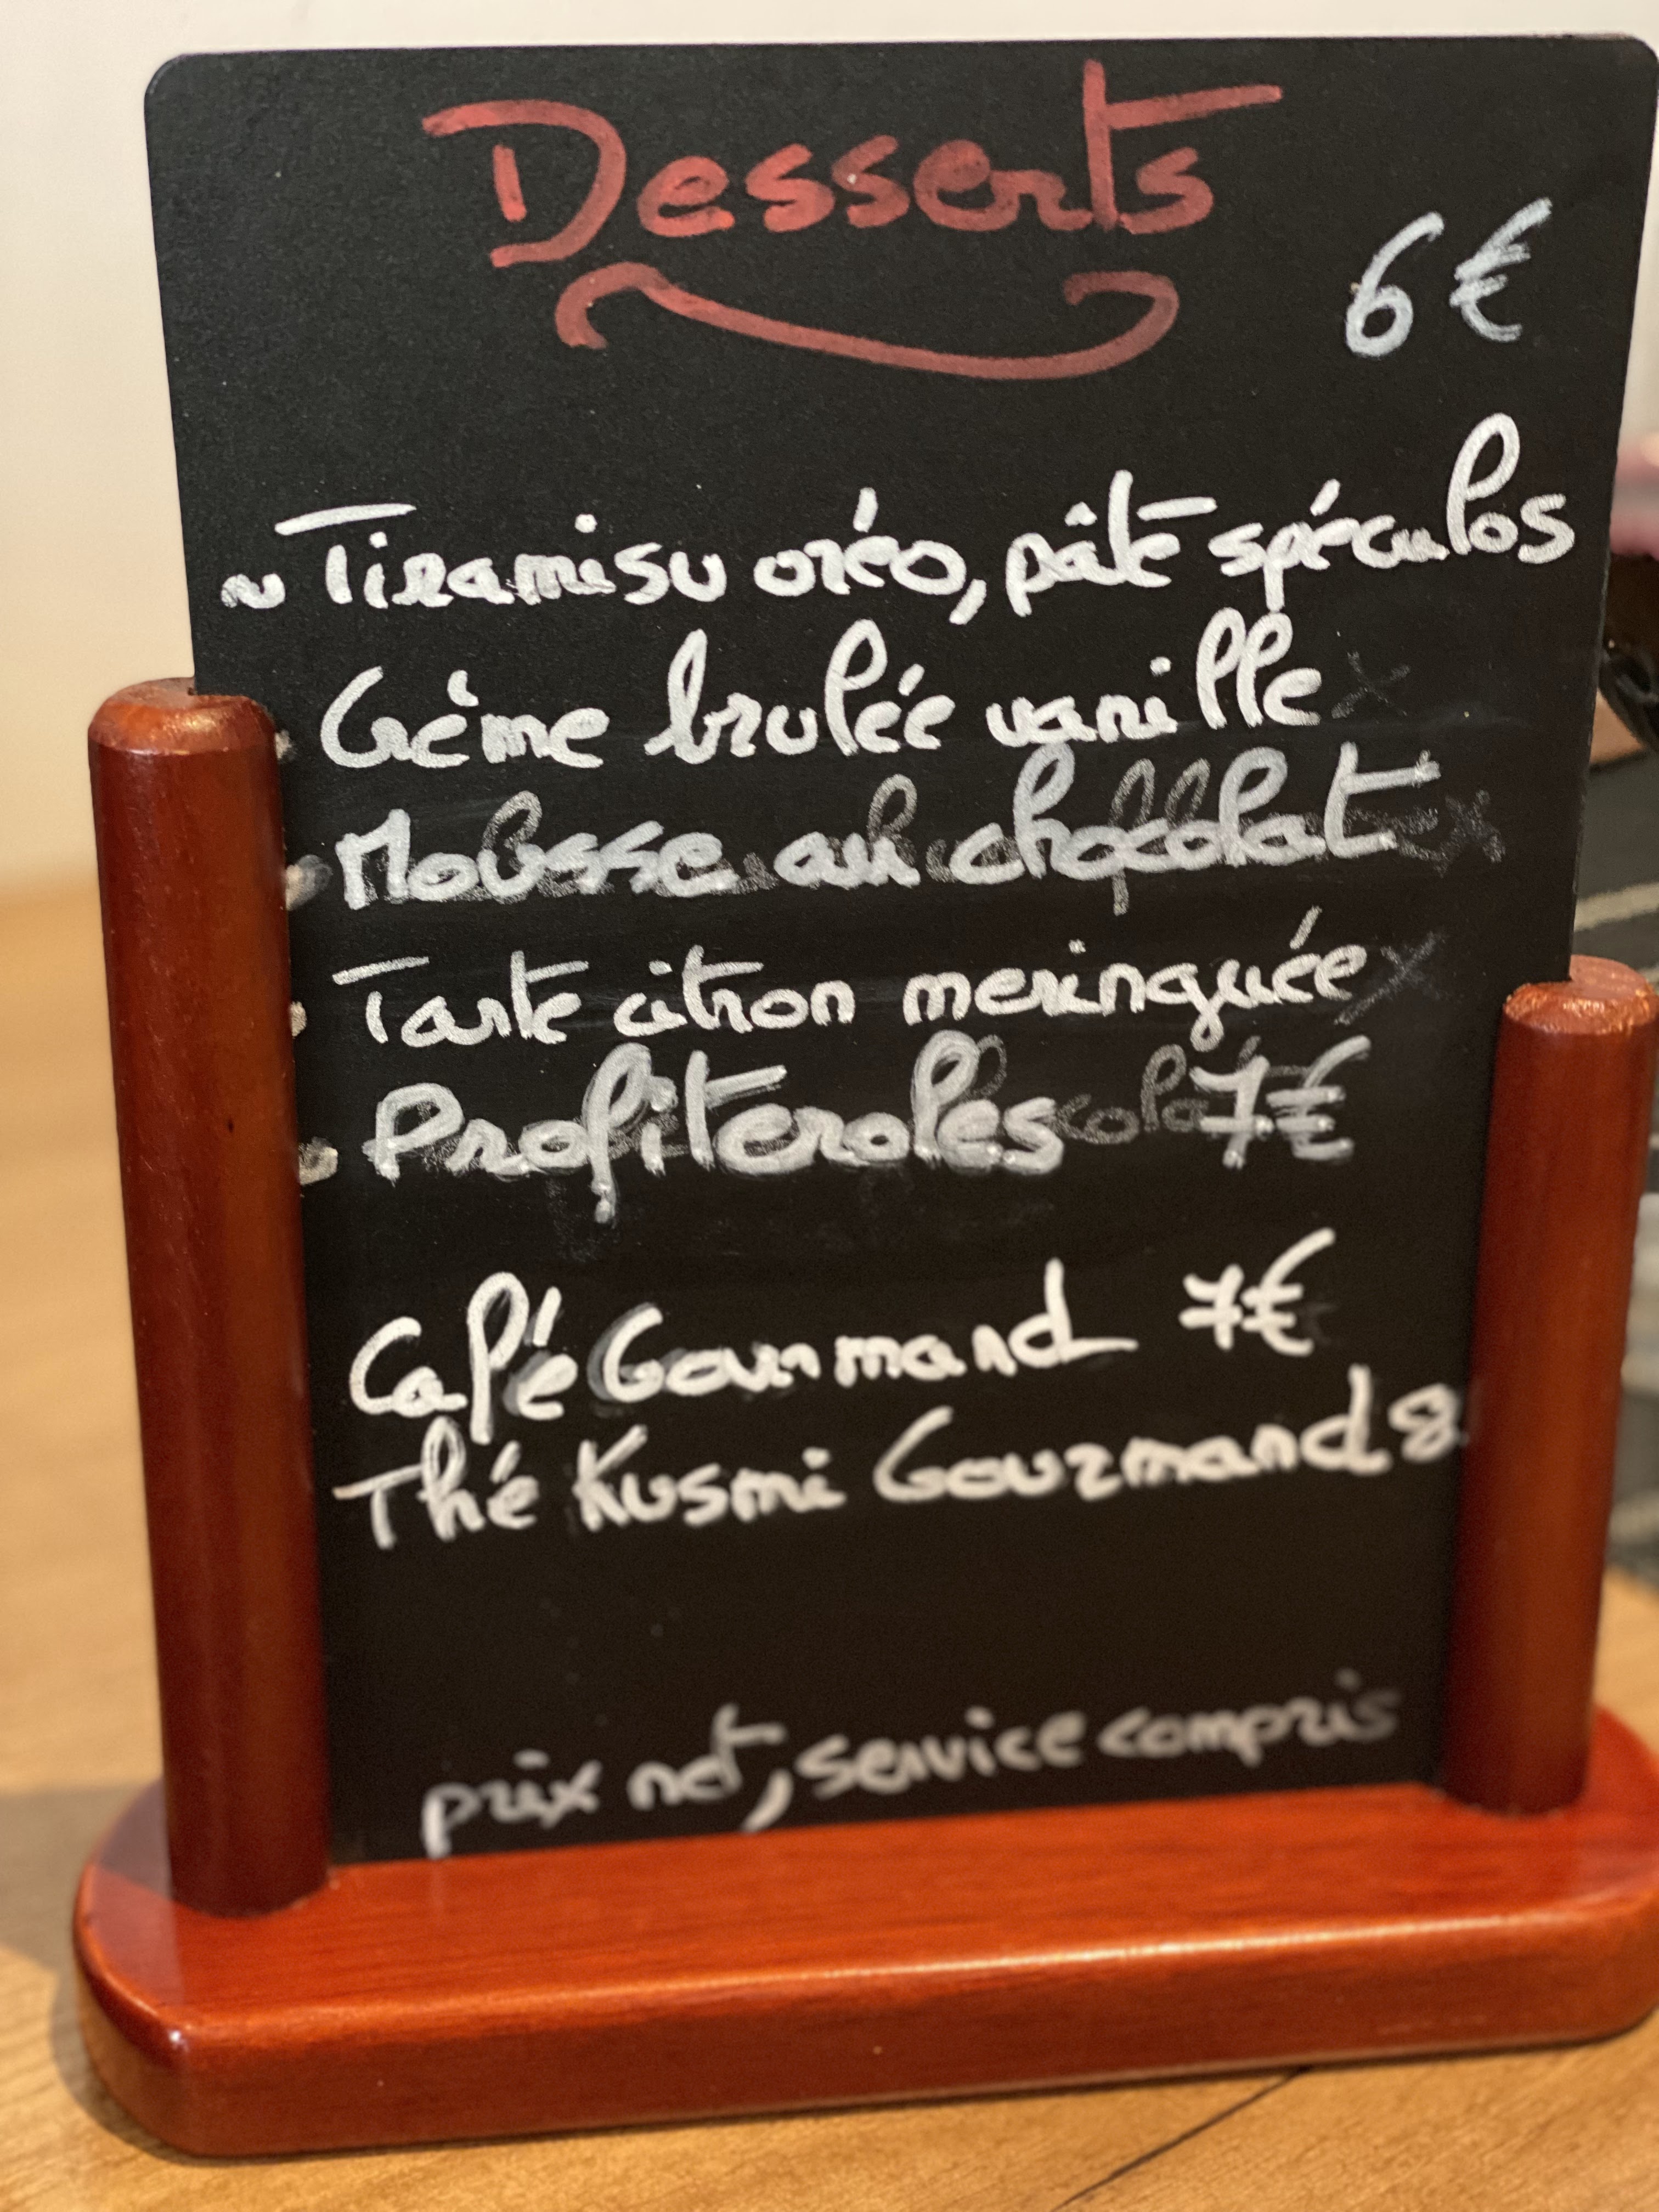 Desserts
6€
~ Tiramisu oréo, pâte spéculos
Crème brulée vanille
Mousse au chocolat
Tarte citron meringuée
Profiteroles 7€
Café Gourmand 7€
Thé Kusmi Gourmand 8
prix net, service compris